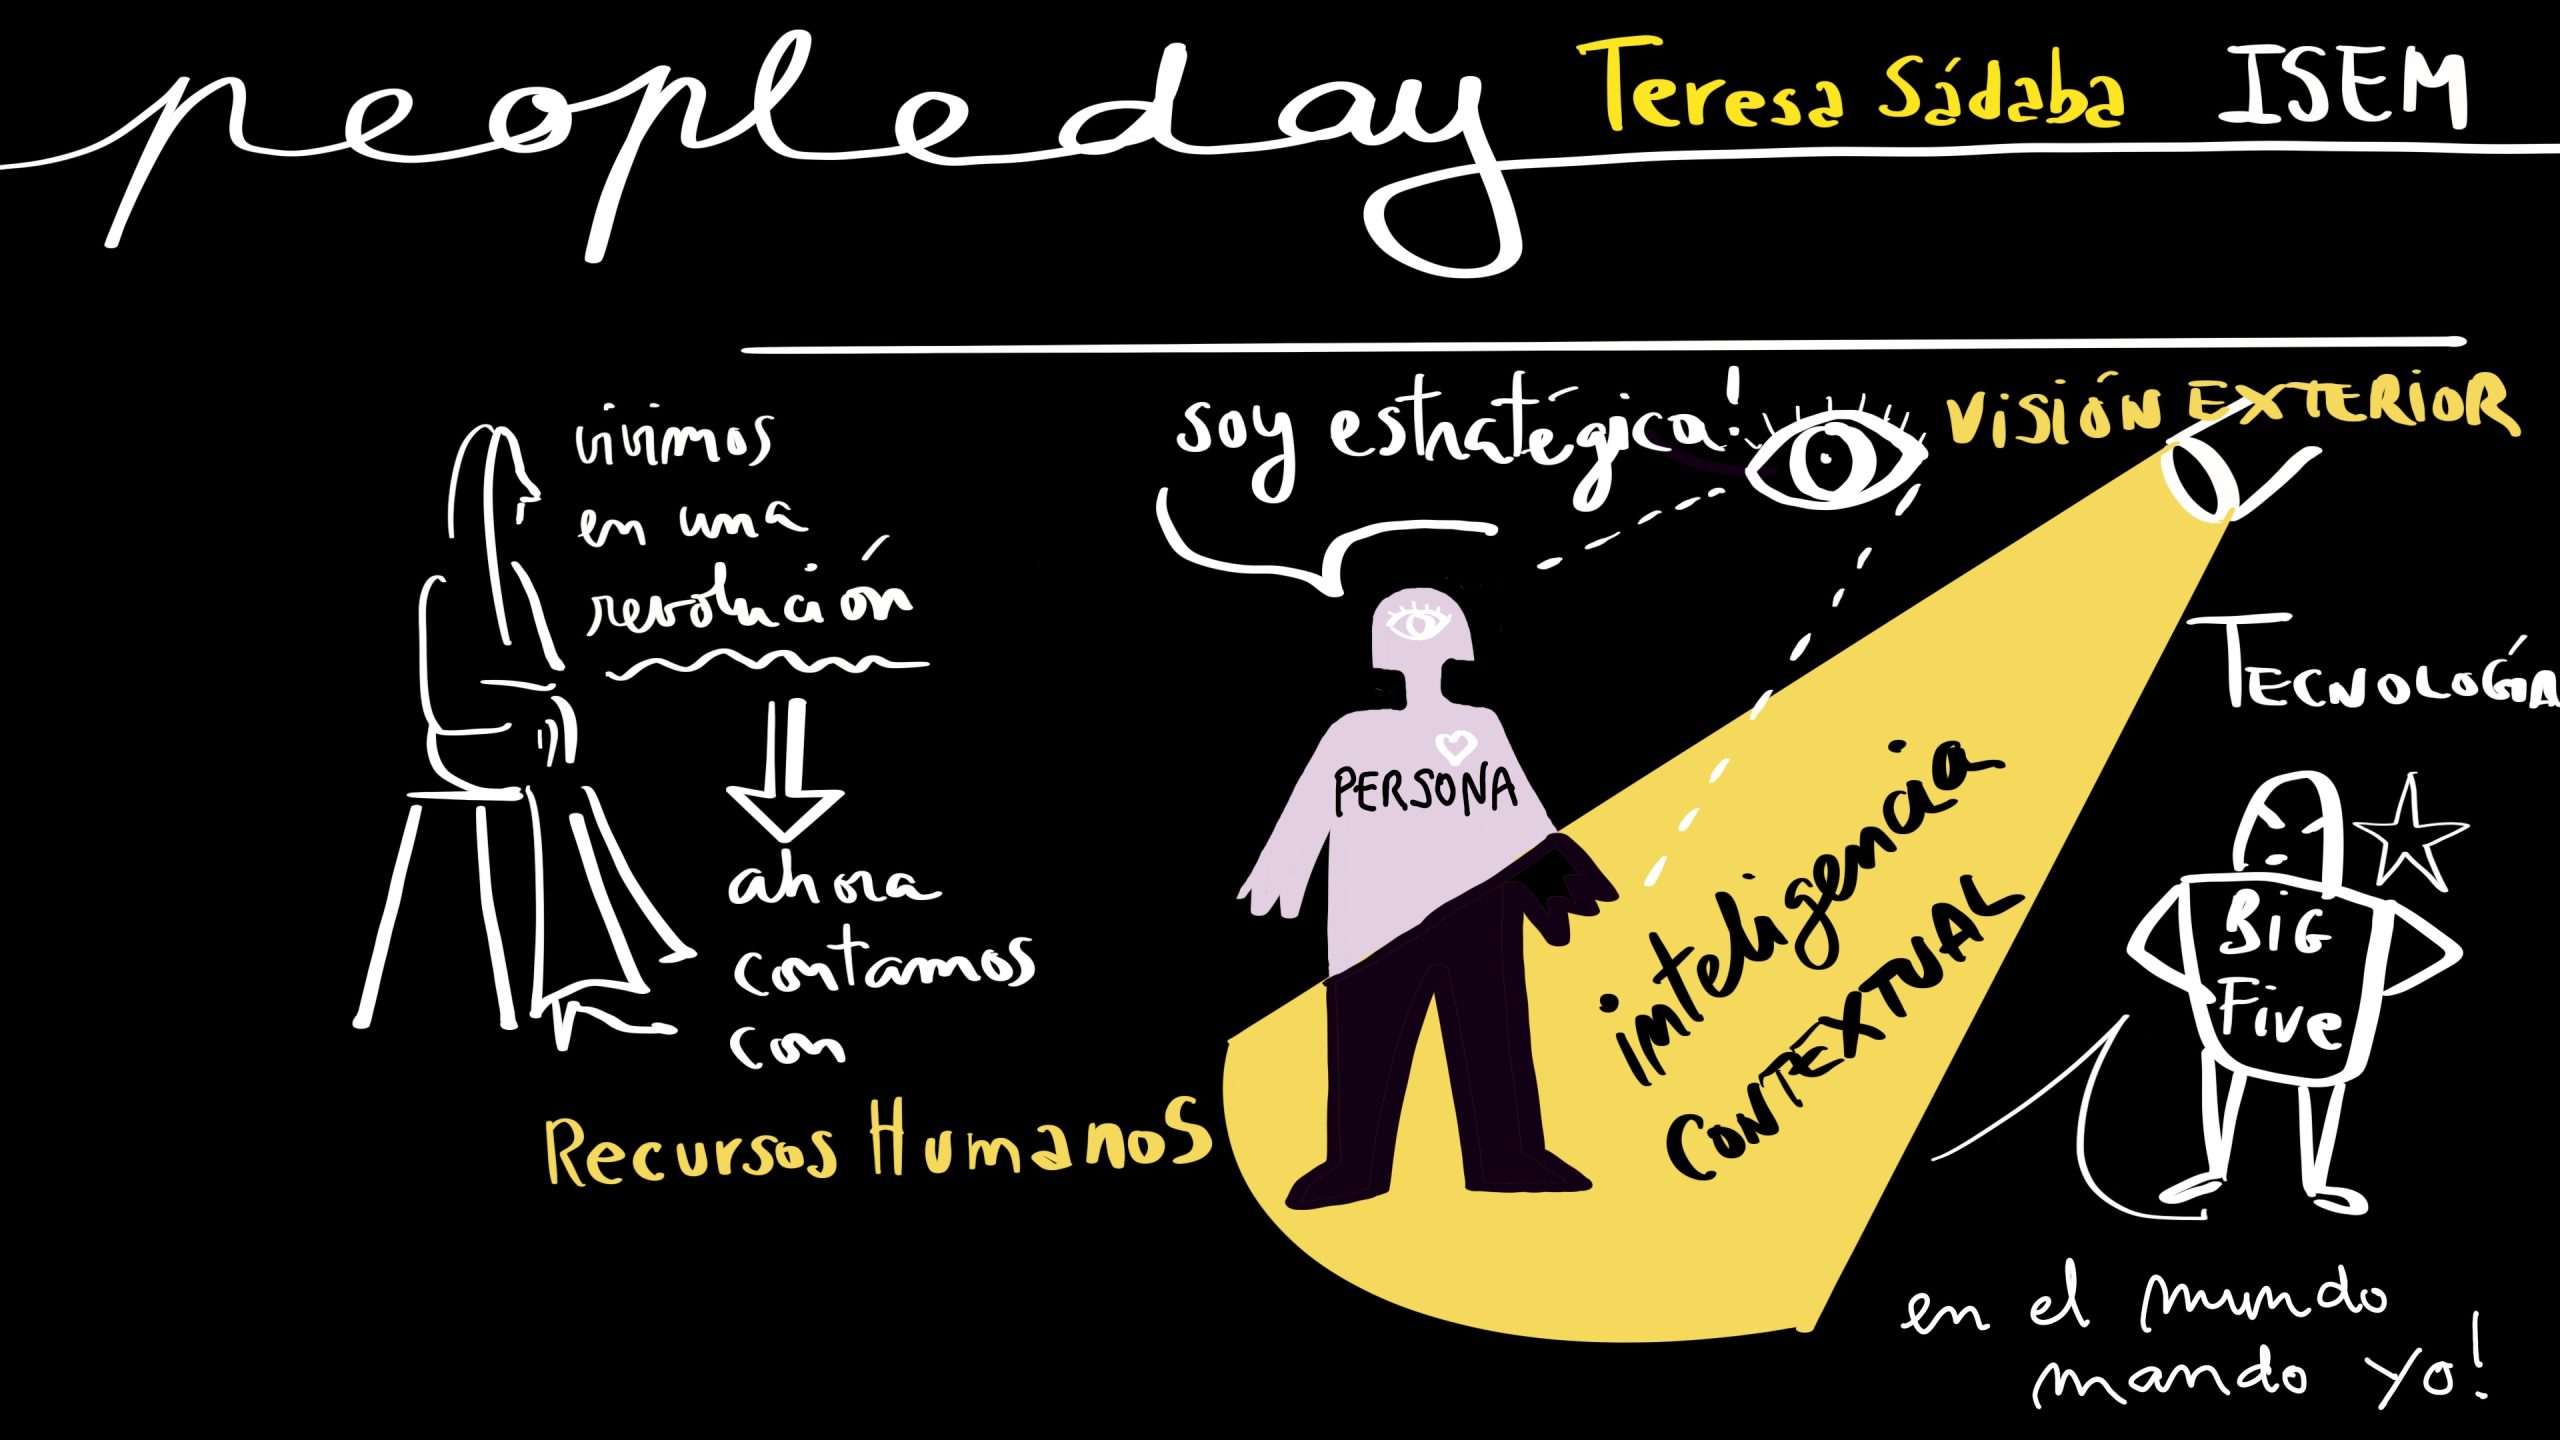 people day Teresa Sádaba ISEM
vivimos
en una
revolución
ahora
contamos
con
Recursos Humanos
soy estratégica!
VISIÓN EXTERIOR
PERSONA
inteligencia
CONTEXTUAL
TECNOLOGÍA
BIG
FIVE
en el mundo
mando yo!